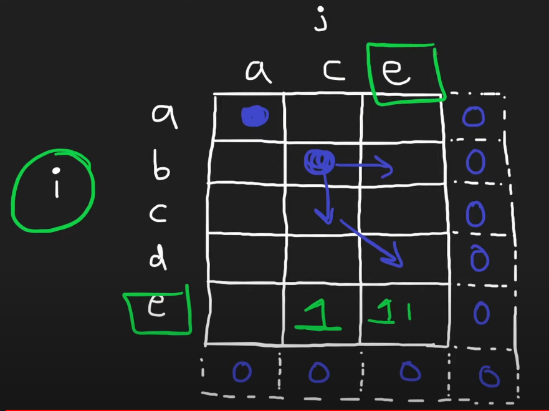 j
a c e
a 0
b 0
i
c 0
d 0
e 1 1 0
0 0 0 0